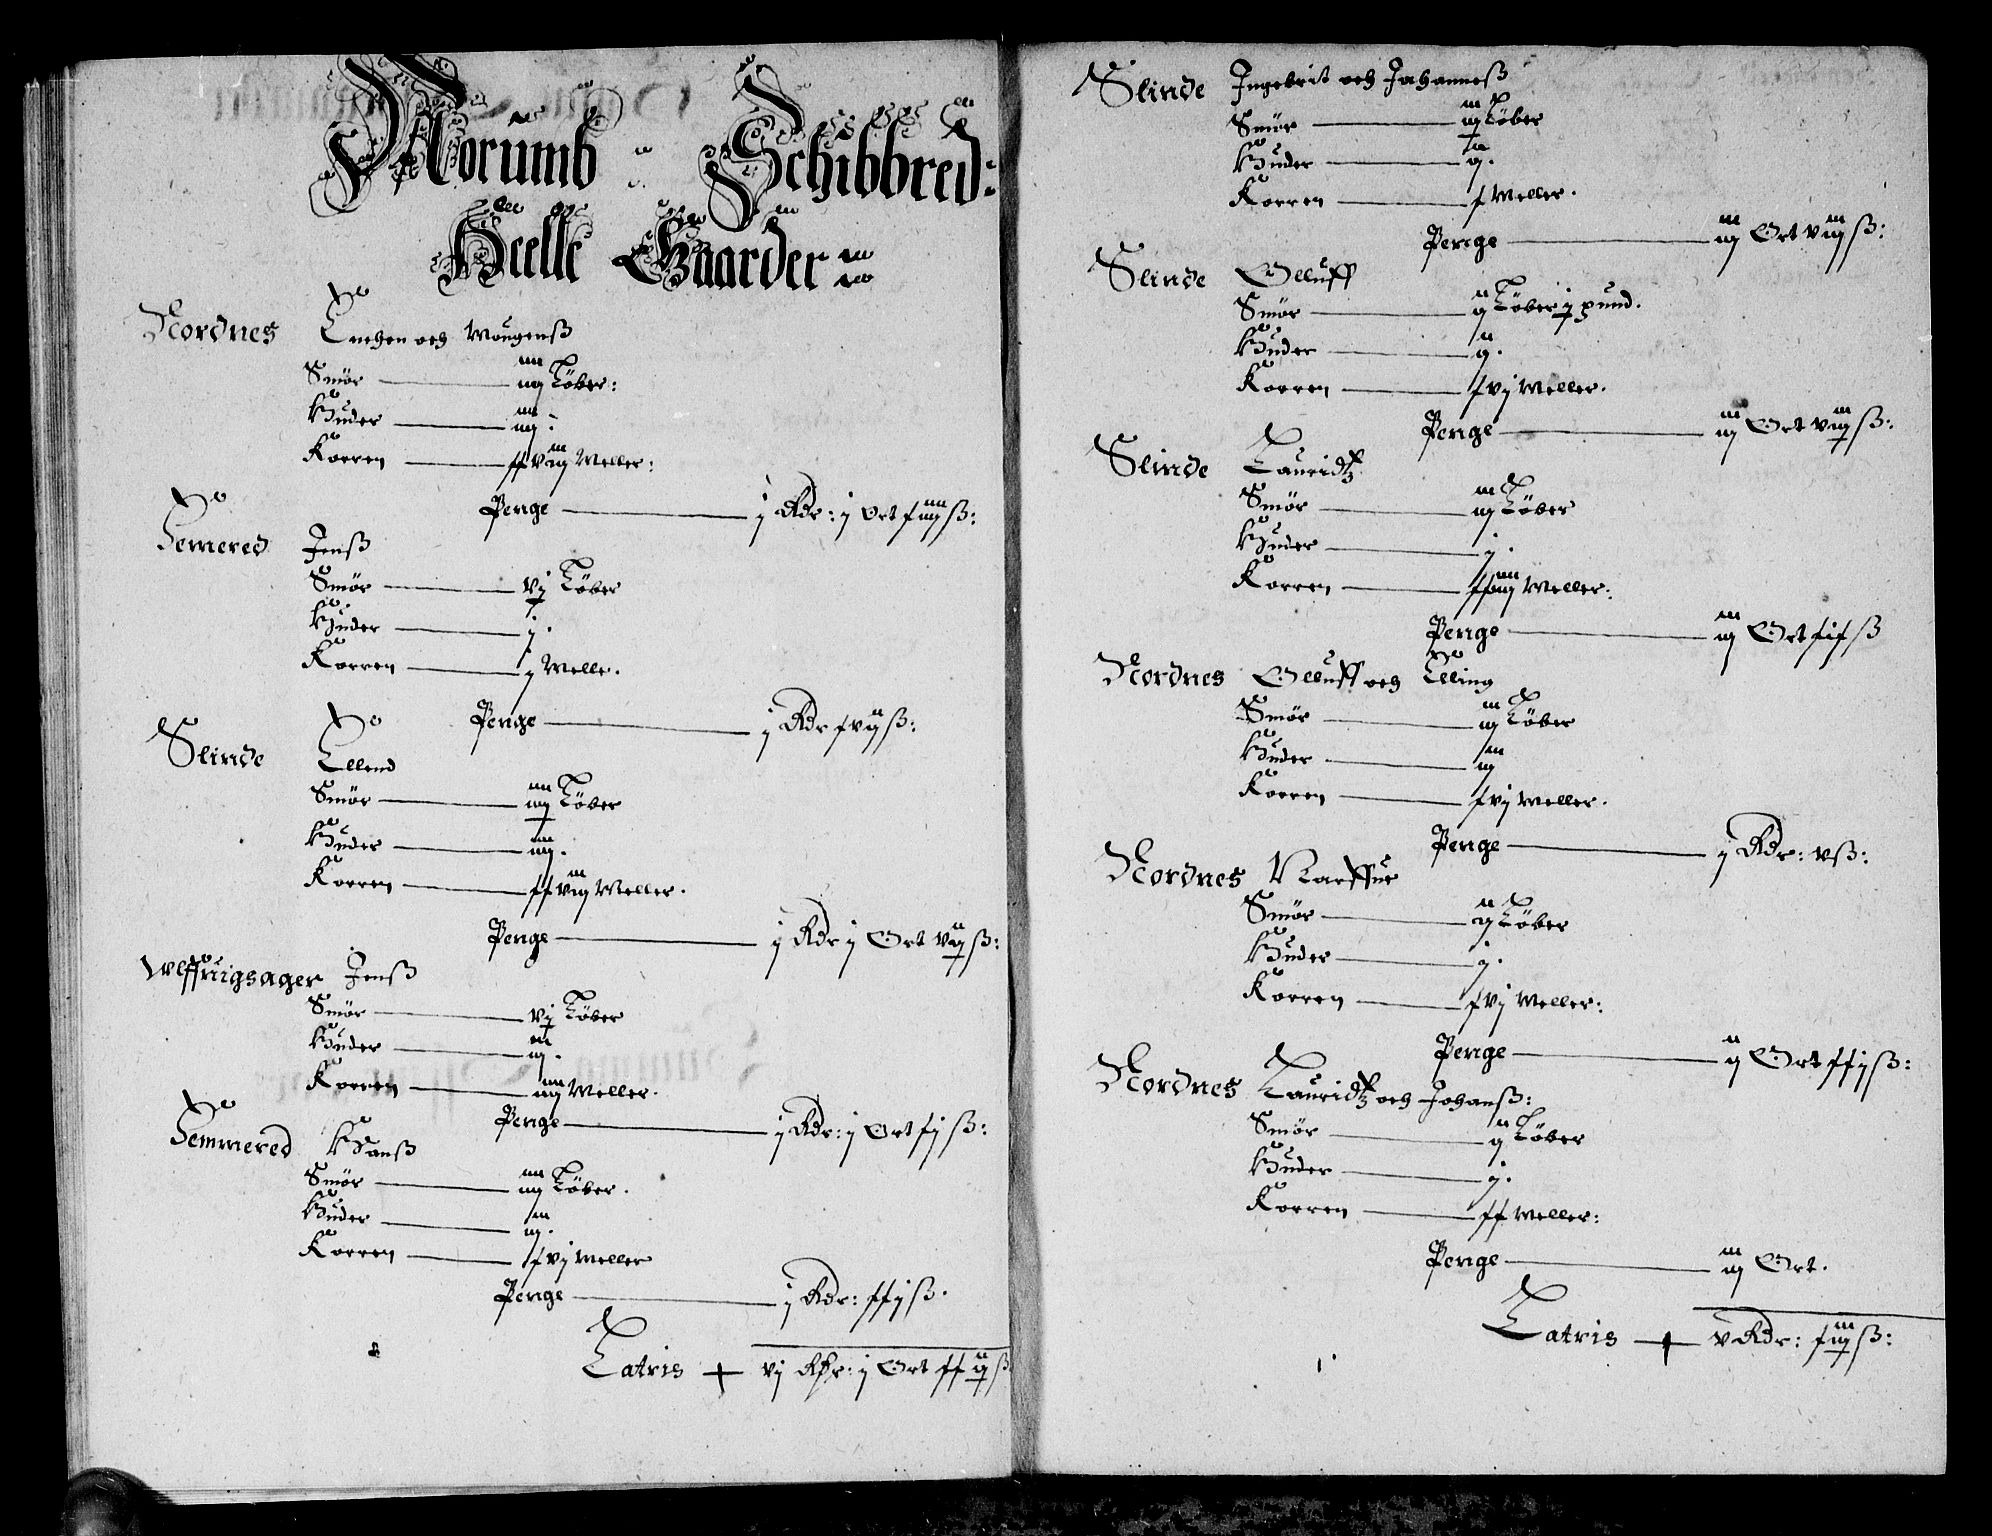 Norumb Schibbred:
Heelle Gaarder
Nordnes Enchen och Mougenß
Smör iiij Löber:
Huder iiij
Korren xxviij Meller:
Penge j Rdr: j Ort xiiij ß:
Semered Jenß
Smör vj Löber
Huder j.
Korren j Melle.
Penge j Rdr xvij ß:
Slinde Ellend
Smör iiij Löber
Huder iiij.
Korren xxviij Meller.
Penge j Rdr j Ort vij ß:
Wlffuigsager Jenß
Smör vj Löber
Huder iij.
Korren iiij Meller.
Penge j Rdr: j Ort xj ß:
Semmered Hanß
Smör iiij Löber.
Huder iij.
Korren xvj Meller
Penge j Rdr: xxj ß.
Latris vj Rdr: j Ort xxij ß
Slinde Ingebrit och Johanneß
Smör iij Löber
Huder ij.
Korren x Meller.
Penge iij Ort viij ß:
Slinde Olluff
Smör ij Löber j pund.
Huder ij.
Korren xvj Meller.
Penge iij Ort viij ß:
Slinde Lauridtz
Smör iij Löber
Huder j.
Korren Meller:
Penge iij Ort xix ß
Nordnes Olluff och Elling
Smör iij Löber
Huder iij
Korren xvj Meller.
Penge j Rdr: v ß:
Nordnes Narffue
Smör ij Löber
Huder j.
Korren xvj Meller:
Penge ij Ort xxj ß:
Nordnes Lauridtz och Johanß:
Smör ij Löber
Huder j.
Korren xx Meller:
Penge iij Ort.
Latris v Rdr: xiij ß: